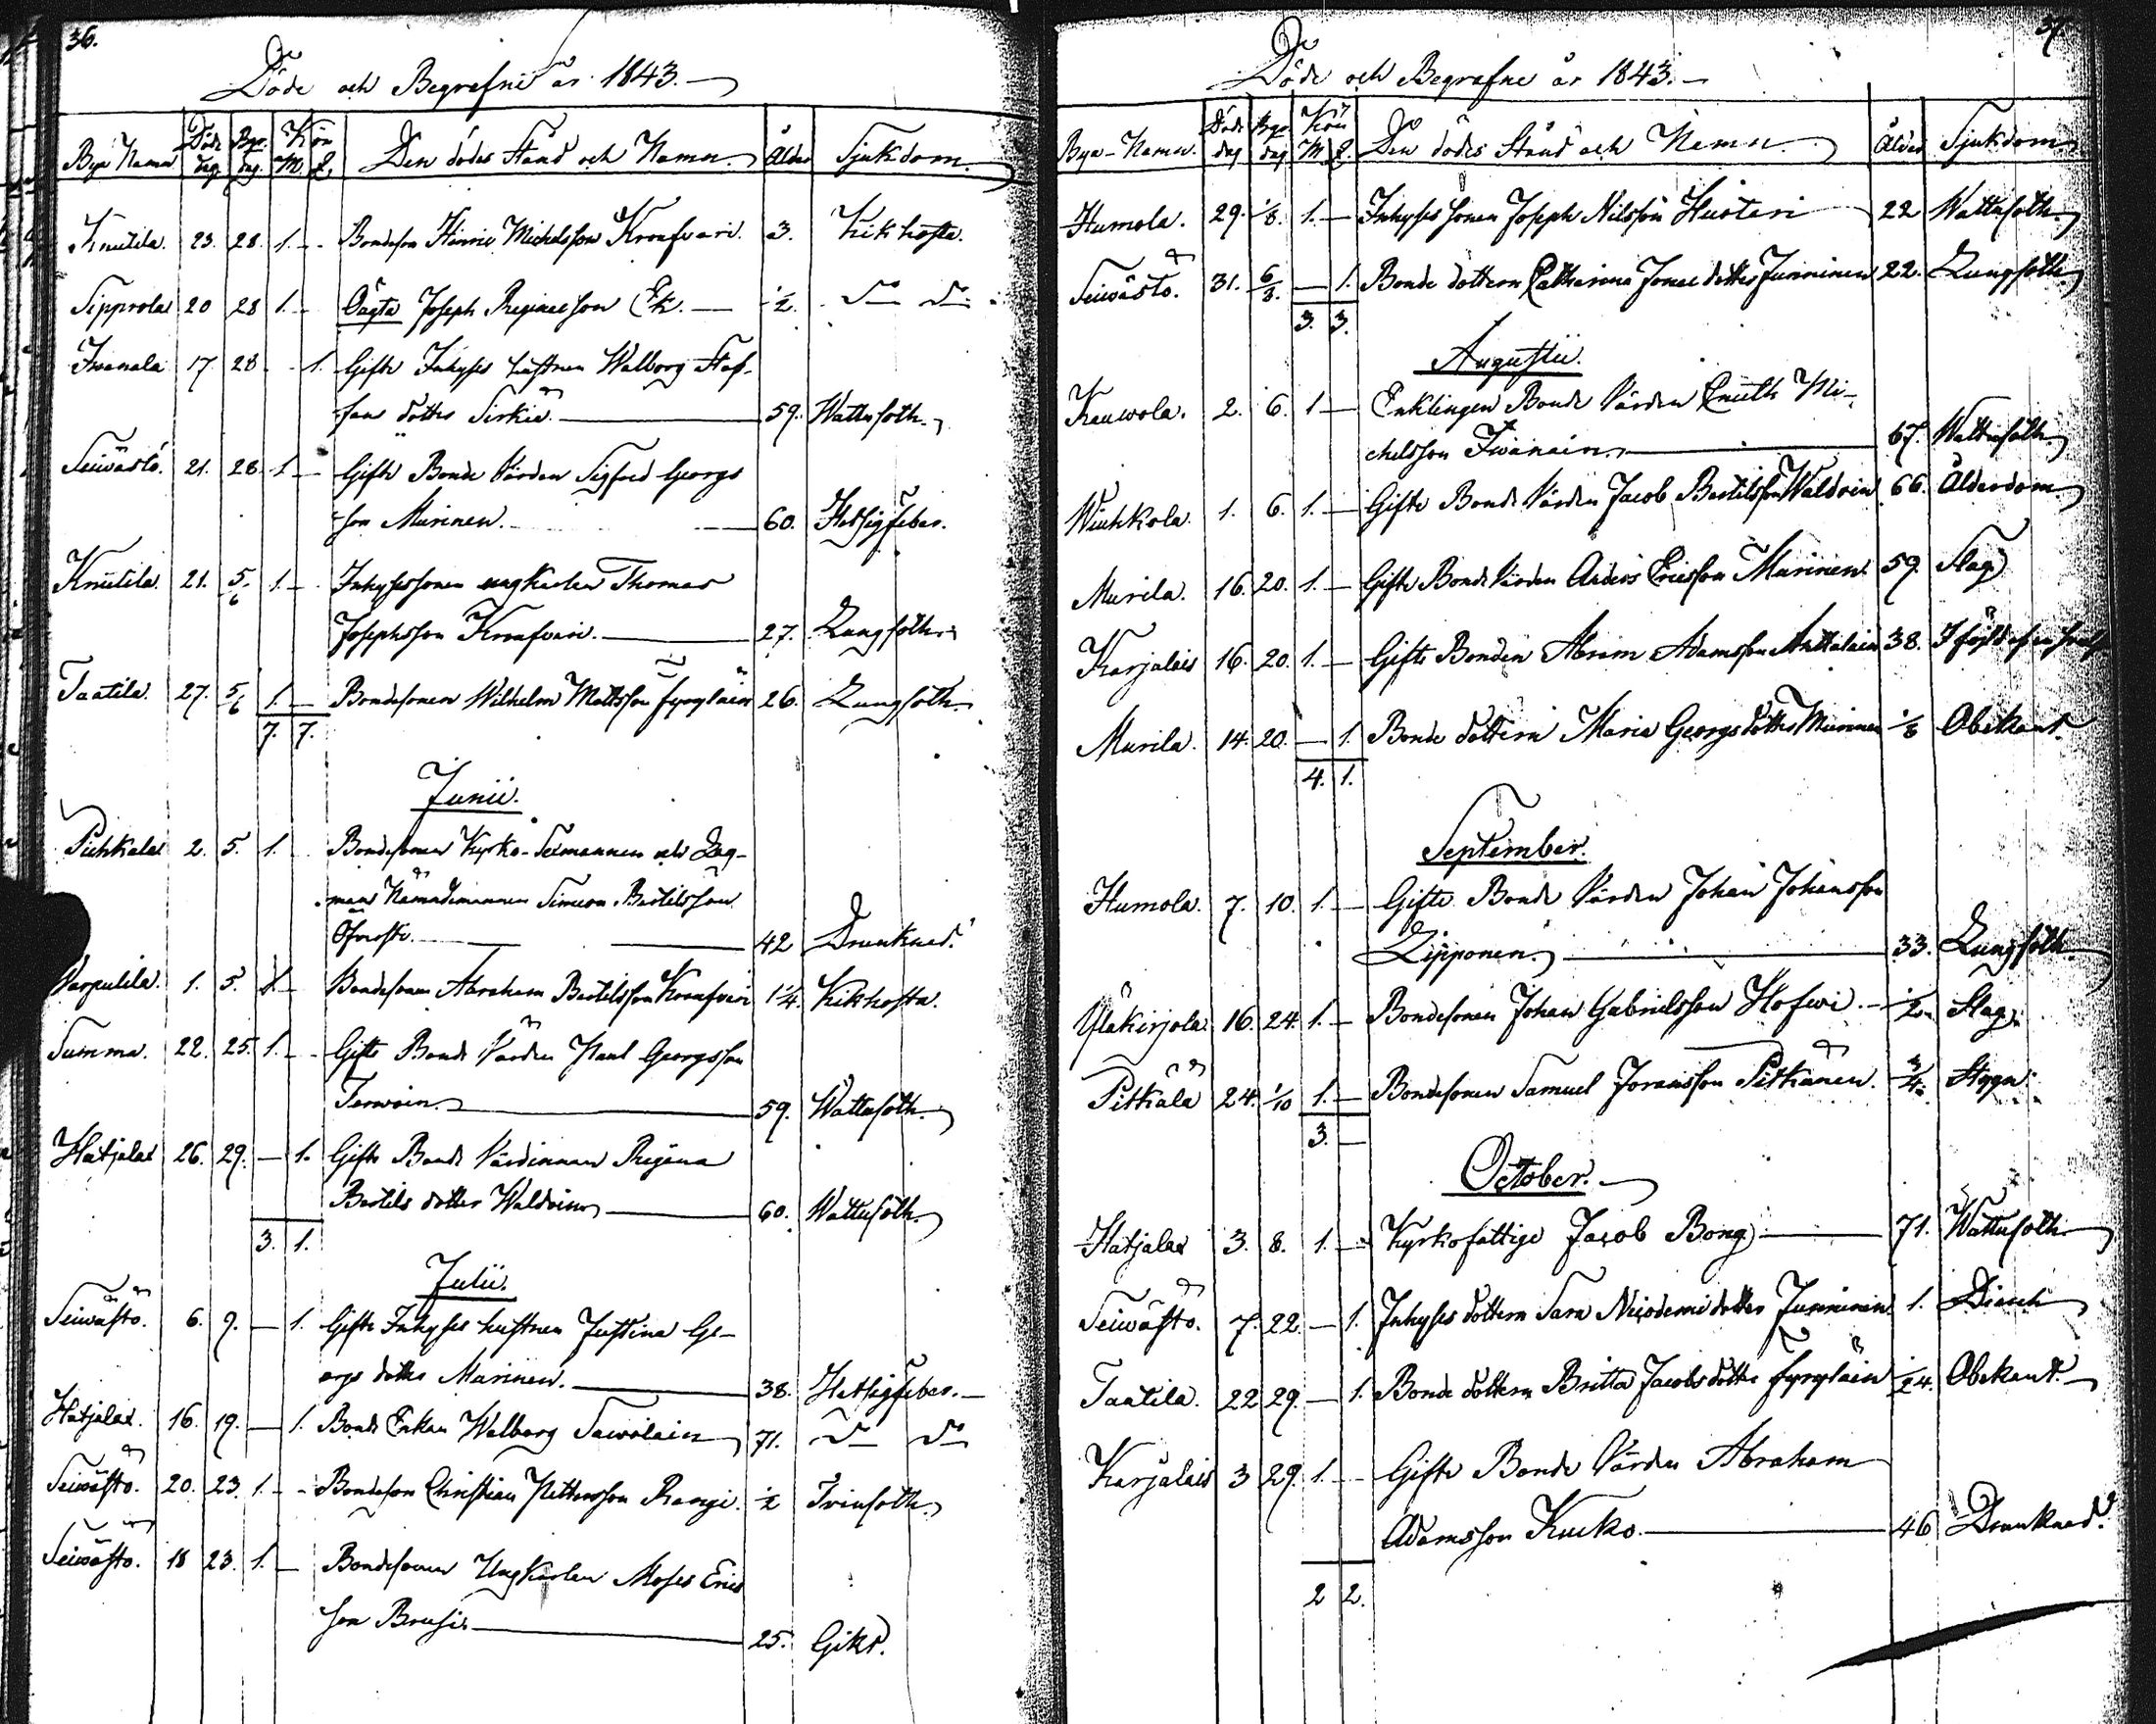 36.
Döde och Begrafne år 1843.
Bya Namn Döds dag Begr. dag Kön M. Q. Den dödes Stånd och Namn. Ålder Sjukdom.
Knutila. 23. 28. 1. - Bondeson Hinric Michelsson Kronfvari. 3. Kikhosta.
Sipprola 20 28 1. - Oägta Joseph Reginaeson Ek. — 1/2. Do Do
Inonala 17 28 - 1. Gifte Inhyses hustrun Walborg Staf-
fans dotter Sirkiä. — 59. Wattusoth.
Seiwästö. 21. 28. 1. - Gifte Bonde Värden Sigfred Georgs
son Murinen. — 60. Hetsigfeber.
Knutila. 21. 5/6 1. - Inhysessonen ungkarlen Thomas
Josephsson Kronfvari. — 27. Lungsoth.
Taatila. 27. 5/6 1. — Bondesonen Wilhelm Mattsson Hyryläin 26. Lungsoth.
7. 7.
Junii.
Pihkala 2. 5. 1. Bondesonen Kyrko-Sexmannen och Lag-
mans Nämndemannen Simeon Bertilsson
42 Drunknad.
Warpulila. 1. 5. 1. - Bondesonen Abraham Bertilsson Kronfvari 1 1/4. Kikhosta.
Summa. 22. 25. 1. - Gifte Bonde Värden Paul Georgsson
Terwoin. — 59. Wattusoth.
Hatjalax 26. 29. — 1. Gifte Bonde Värdinnan Regina
Bertils dotter Waldoin — 60. Wattusoth.
3. 1.
Julii.
Seiwästö. 6. 9. — 1. Gifte Inhyses hustrun Justina Ge-
orgs dotter Murinen. — 38. Hetsigfeber. —
Hatjalax. 16. 19. — 1. Bonde Enkan Walborg Sawolain 71. Do Do
Seiwästö. 20. 23. 1. - Bondeson Christian Pettersson Rongi. 1/2 Trinsoth.
Seiwästö. 18 23. 1. — Bondesonen Ungkarlen Moses Erics
son Brusi. — 25. Gikt.
37.
Döde och Begrafne år 1843. —
Bya-Namn. Döds dag Begr. dag Kön M. Q. Den dödes Stånd och Namn. Ålder Sjukdom
Humola. 29. 1/8. 1. — Inhyses sonen Joseph Nilsson Husteri 22 Wattusoth.
Seiwästö. 31. 6/8. — 1. Bonde dottern Catharina Jonae dotter Junninen 22. Lungsoth.
3. 3.
Augustii.
Kauwola. 2. 6. 1 — Enklingen Bonde Värden Cnuth Mi-
chelsson Iwanain. — 67. Wattusoth.
Wiuhkola. 1. 6. 1. — Gifte Bonde Värden Jacob Bertilsson Waldoin 66. Ålderdom.
Murila. 16. 20. 1. — Gifte Bonde Värden Anders Ericsson Murinen. 59. Slag.
Karjalais 16. 20. 1. — Gifte Bonden Abram Adamsson Anttalain 38. I följd af
Murila. 14. 20. — 1. Bonde dottern Maria Georgsdotter Murinen 1/6 Obekant.
4. 1.
September.
Humola. 7. 10. 1. — Gifte Bonde Värden Johan Johansson
Lipponen. — 33. Lungsoth.
Yläkirjola 16. 24. 1. — Bondesonen Johan Gabrielsson Hofwi. — 1/2. Slag.
Pitkälä 24. 1/10 1. — Bondesonen Samuel Joransson Pitkänen. 3/4. Stygn.
3. —
October. —
Hatjalax 3. 8. 1. — Kyrkofattige Jacob Bong — 71. Wattusoth.
Seiwästö. 7. 22. — 1. Inhyses dottern Sara Nicodemi dotter Junninen 1. Diareh
Taatila. 22 29. — 1. Bonde dottern Britta Jacobs dotter Hyryläin 1/24. Obekant. —
Karjalais 3 29. 1. - Gifte Bonde Värden Abraham
Adamsson Kucko. — 46 Drunknad.
2 2.